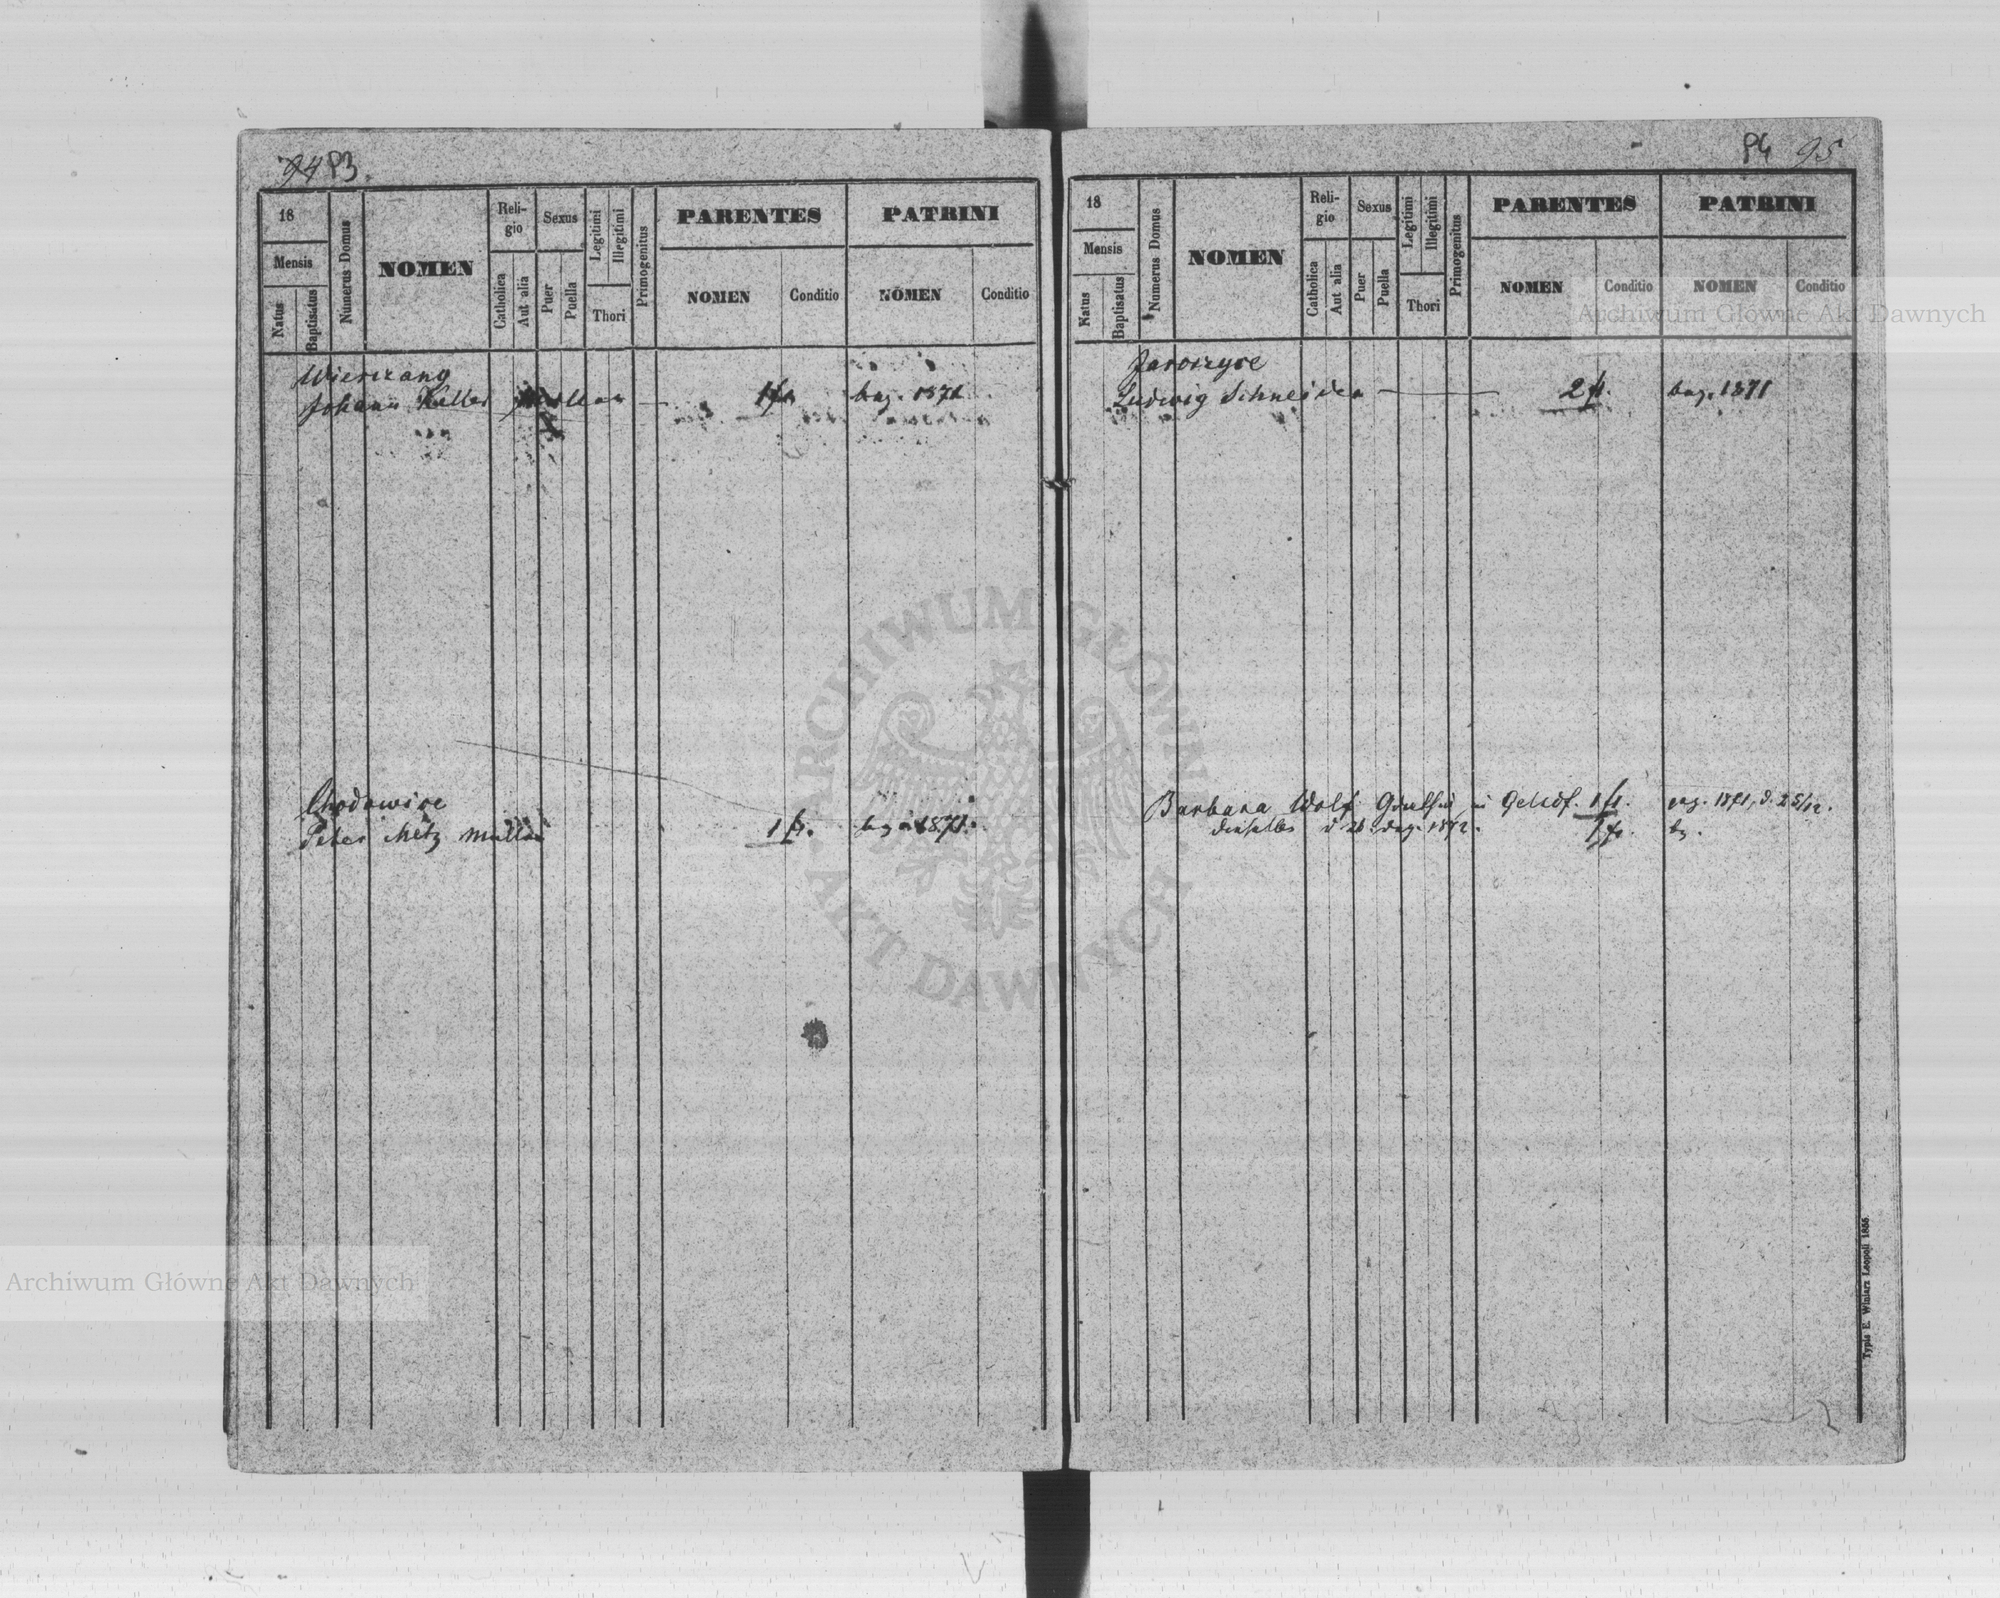 94 83.
18
Mensis
Natus
Baptisatus
Numerus Domus
NOMEN
Religio
Catholica
Aut alia
Sexus
Puer
Puella
Legitimi
Illegitimi
Thori
Primogenitus
PARENTES
NOMEN
Conditio
PATRINI
NOMEN
Conditio
Wierczany
Johann Keller 1 f. bez. 1871
Chodowice
Peter Metz Müller 1 f. bez. 1871.
84 95
18
Mensis
Natus
Baptisatus
Numerus Domus
NOMEN
Religio
Catholica
Aut alia
Sexus
Puer
Puella
Legitimi
Illegitimi
Thori
Primogenitus
PARENTES
NOMEN
Conditio
PATRINI
NOMEN
Conditio
Ludwig Schneider 2 f. bez. 1871
Barbara Wolf in 1 f. 1871, d. 25/12.
1 f. bz.
Typis E. Winiarz Leopoli 1856
Archiwum Główne Akt Dawnych
Archiwum Główne Akt Dawnych
ARCHIWUM GŁÓWNE AKT DAWNYCH